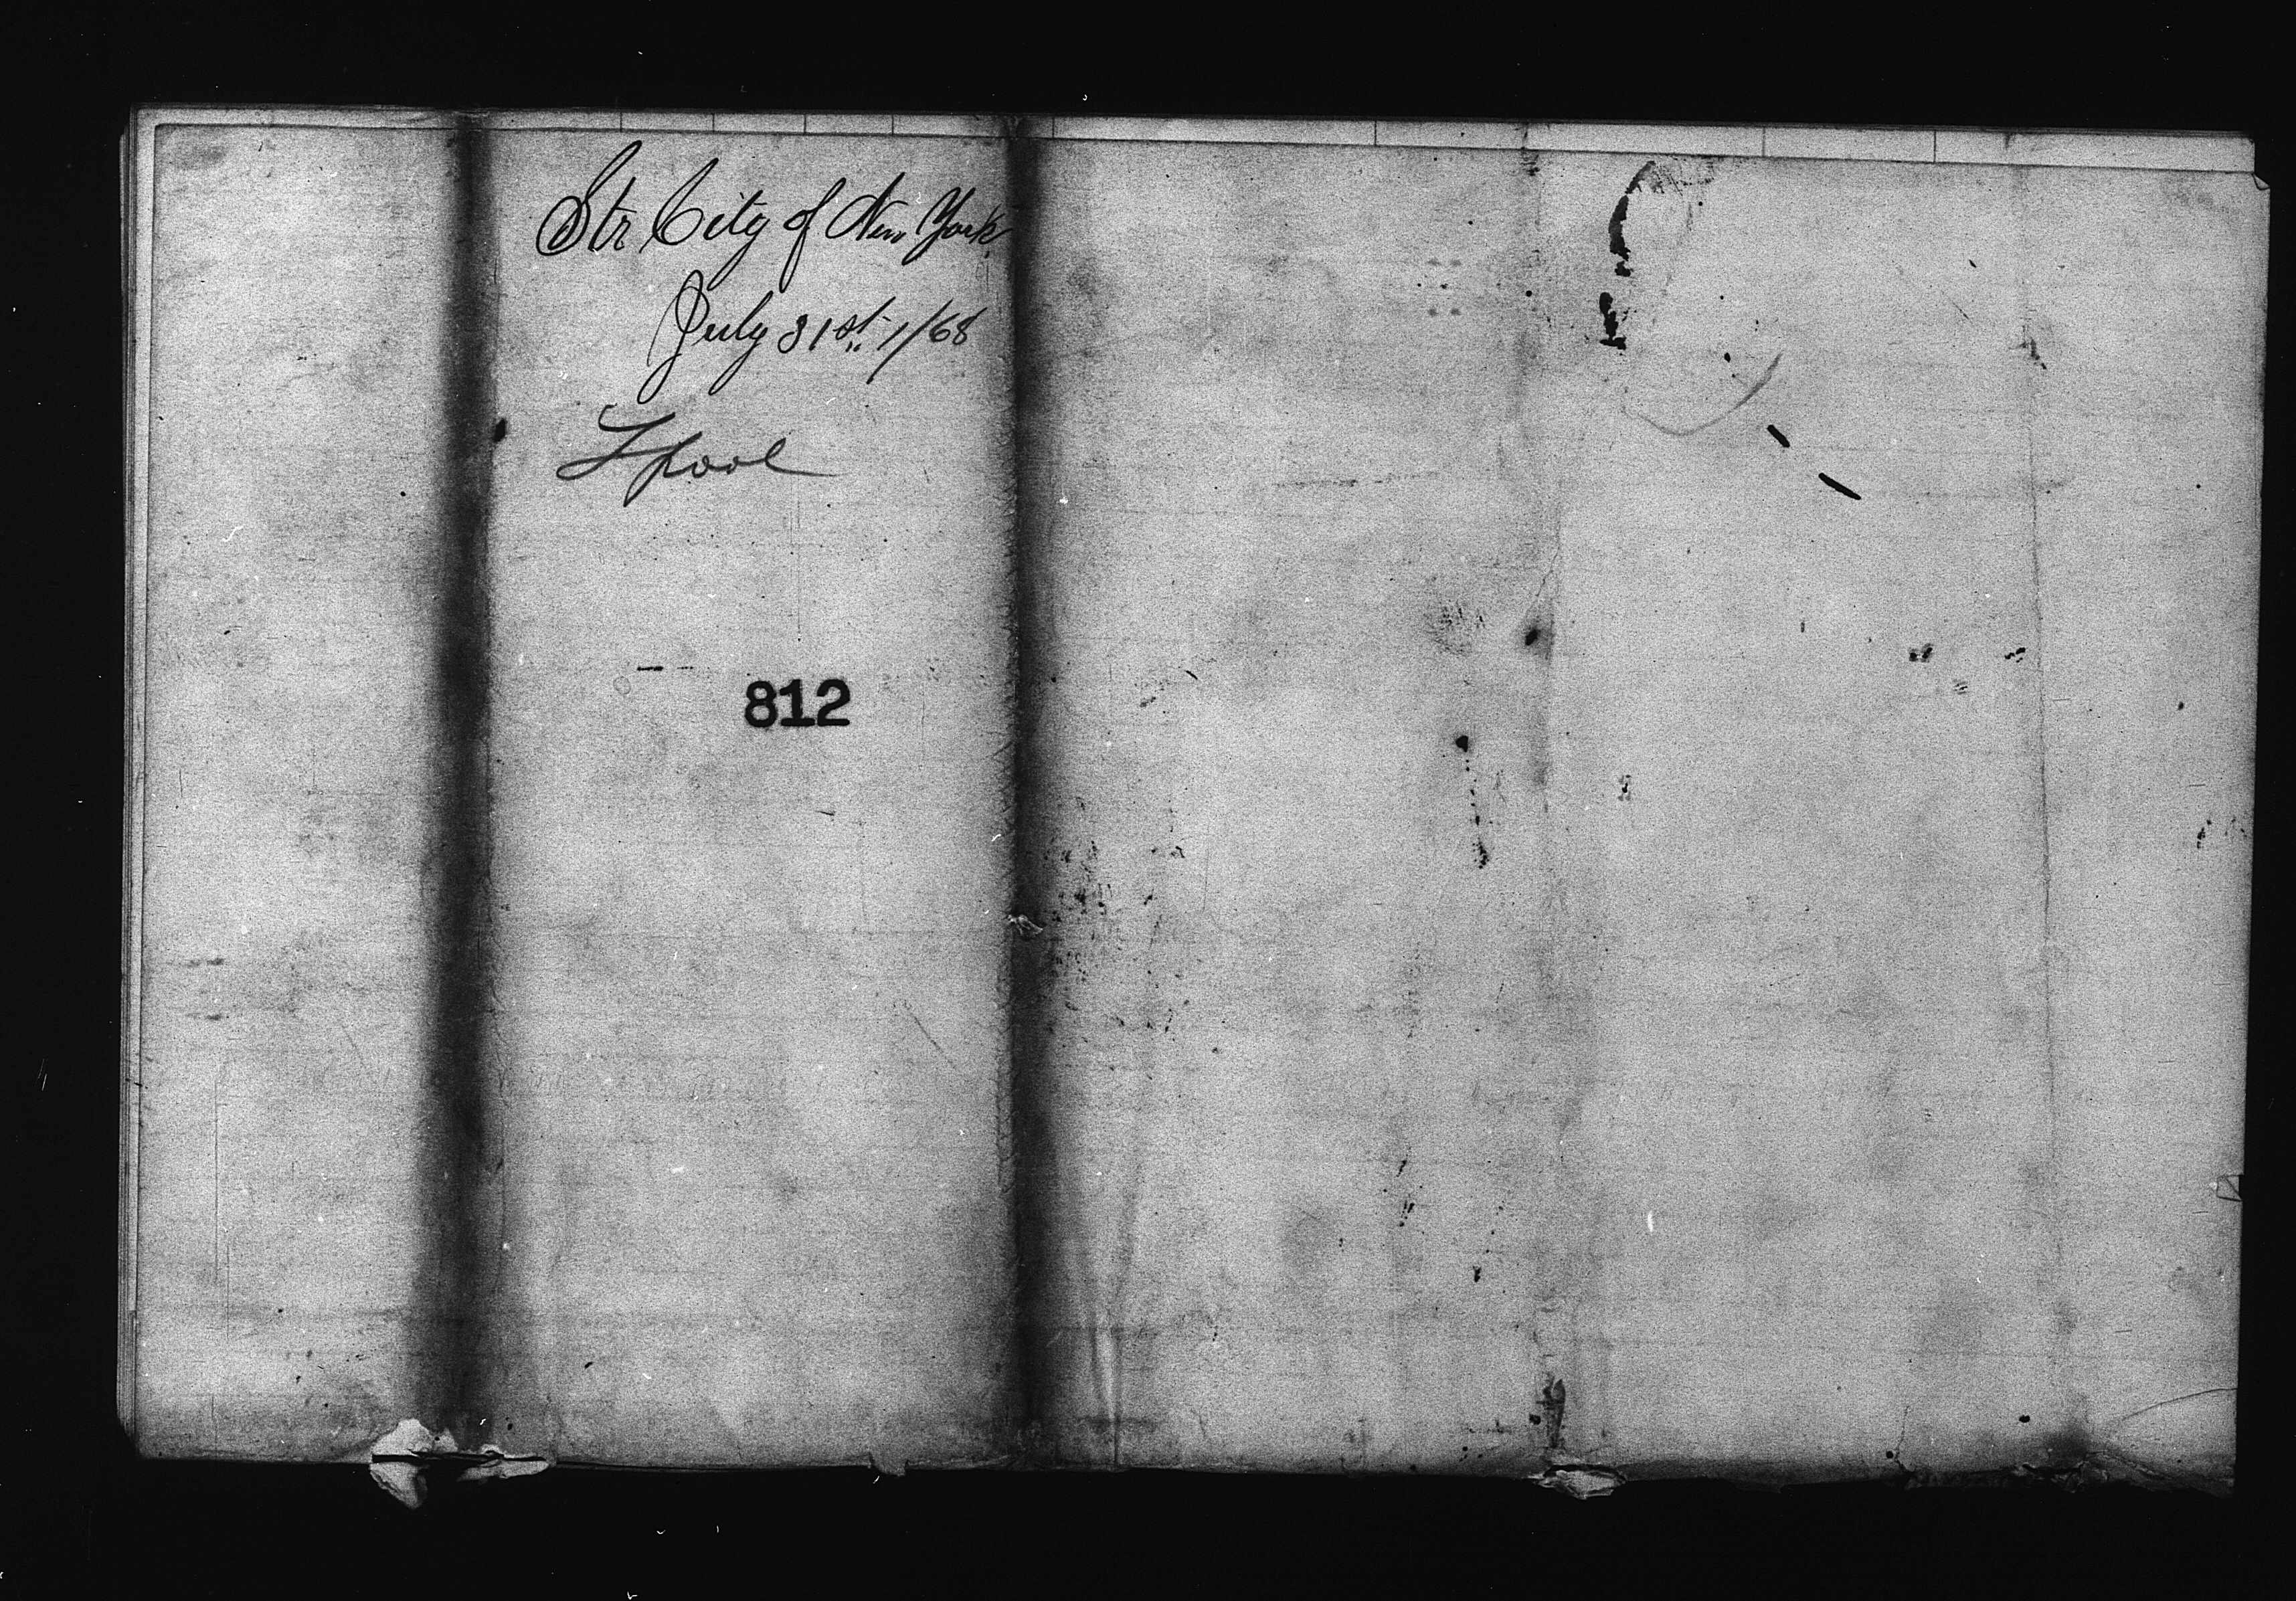 Str City of New York
July 31st 1/68
Lpool
812